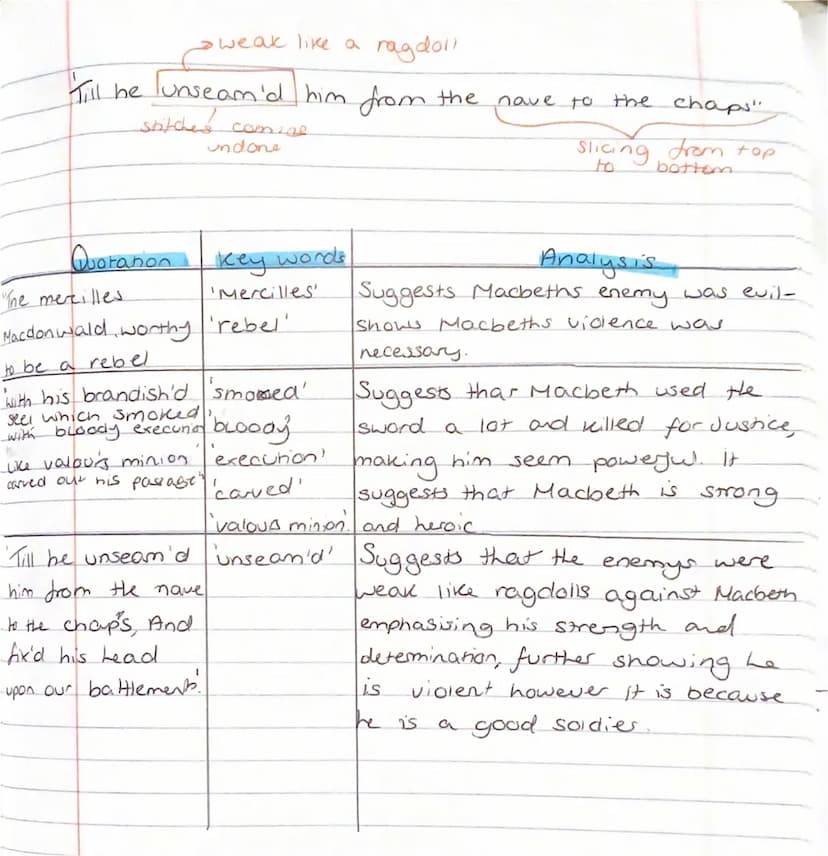 weak like a ragdoll
'Till he unseam'd him from the nave to the chaps"
stitches coming
undone
slicing from top
to bottom
Quotation Key words Analysis
"The mercilles
Macdonwald, worthy
to be a rebel
'Mercilles'
'rebel'
Suggests Macbeths enemy was evil-
shows Macbeths violence was
necessary.
'with his brandish'd
steel which smoked
with bloody execution
like valours minion
carved out his passage"
'smoked'
'bloody'
'execution'
'carved'
'valous minion'
Suggests that Macbeth used the
sword a lot and killed for Justice,
making him seem powerful. It
suggests that Macbeth is strong
and heroic
'Till he unseam'd
him from the nave
to the chaps, And
fix'd his head
upon our battlements'.
'unseam'd'
Suggests that the enemys were
weak like ragdolls against Macbeth
emphasising his strength and
determination, further showing he
is violent however it is because
he is a good soldier.